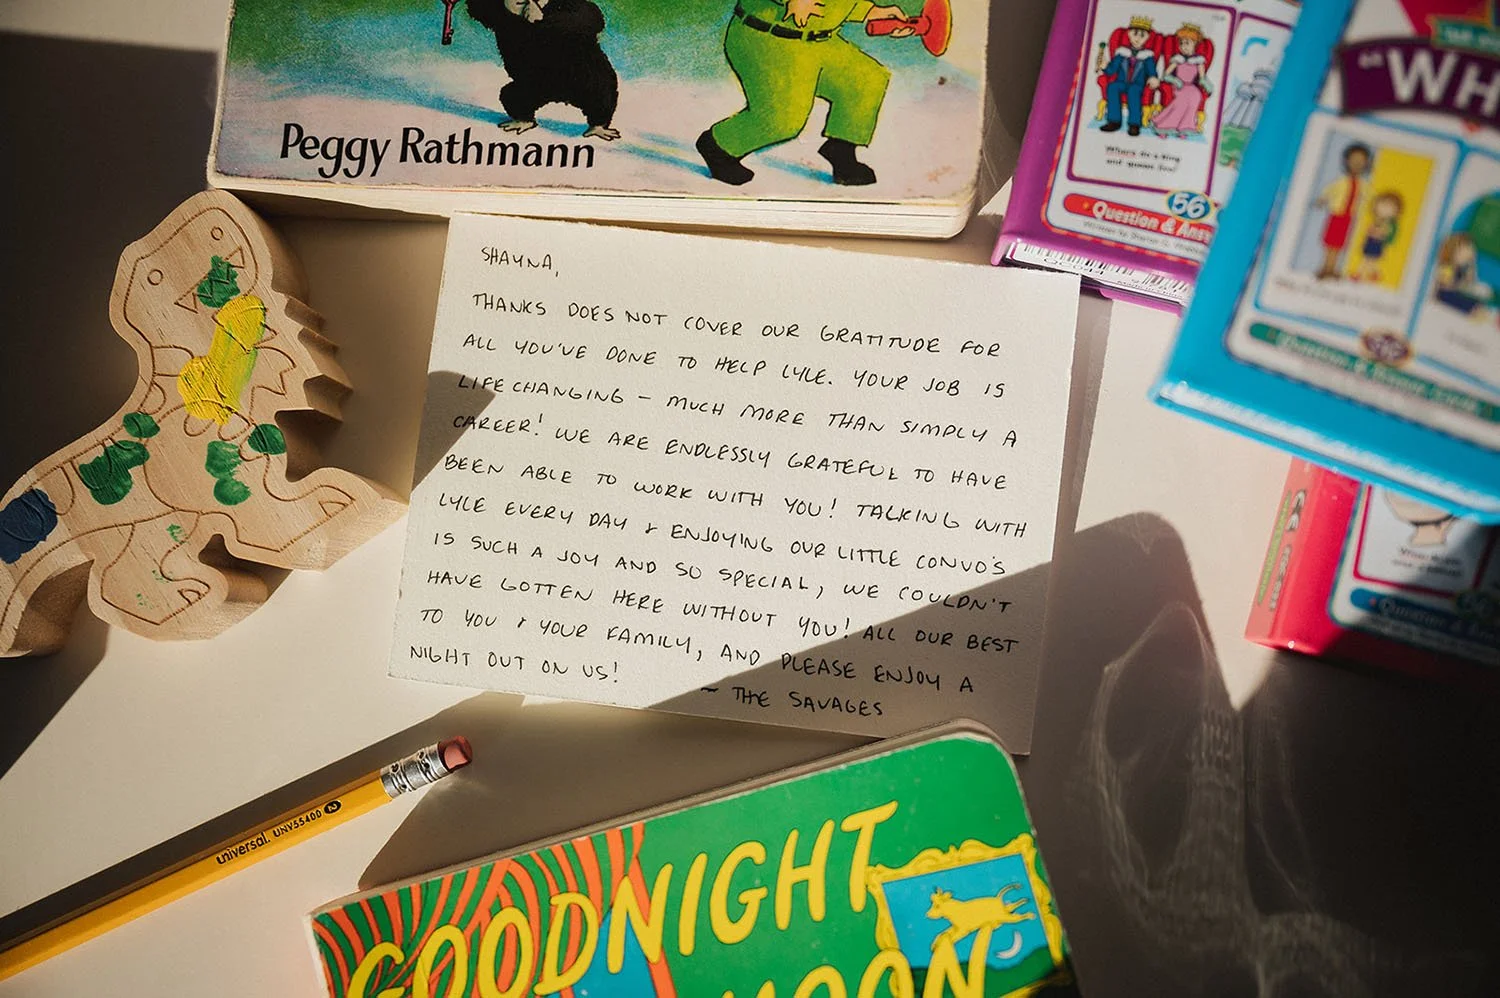 Peggy Rathmann
Where do a king
and queen live?
56
Question & Ans
"WH
SHAYNA,
THANKS DOES NOT COVER OUR GRATITUDE FOR
ALL YOU'VE DONE TO HELP LYLE. YOUR JOB IS
LIFE CHANGING – MUCH MORE THAN SIMPLY A
CAREER! WE ARE ENDLESSLY GRATEFUL TO HAVE
BEEN ABLE TO WORK WITH YOU! TALKING WITH
LYLE EVERY DAY & ENJOYING OUR LITTLE CONVO'S
IS SUCH A JOY AND SO SPECIAL, WE COULDN'T
HAVE GOTTEN HERE WITHOUT YOU! ALL OUR BEST
TO YOU & YOUR FAMILY, AND PLEASE ENJOY A
NIGHT OUT ON US!
~ THE SAVAGES
universal. UNV55400 2
GOODNIGHT
MOON